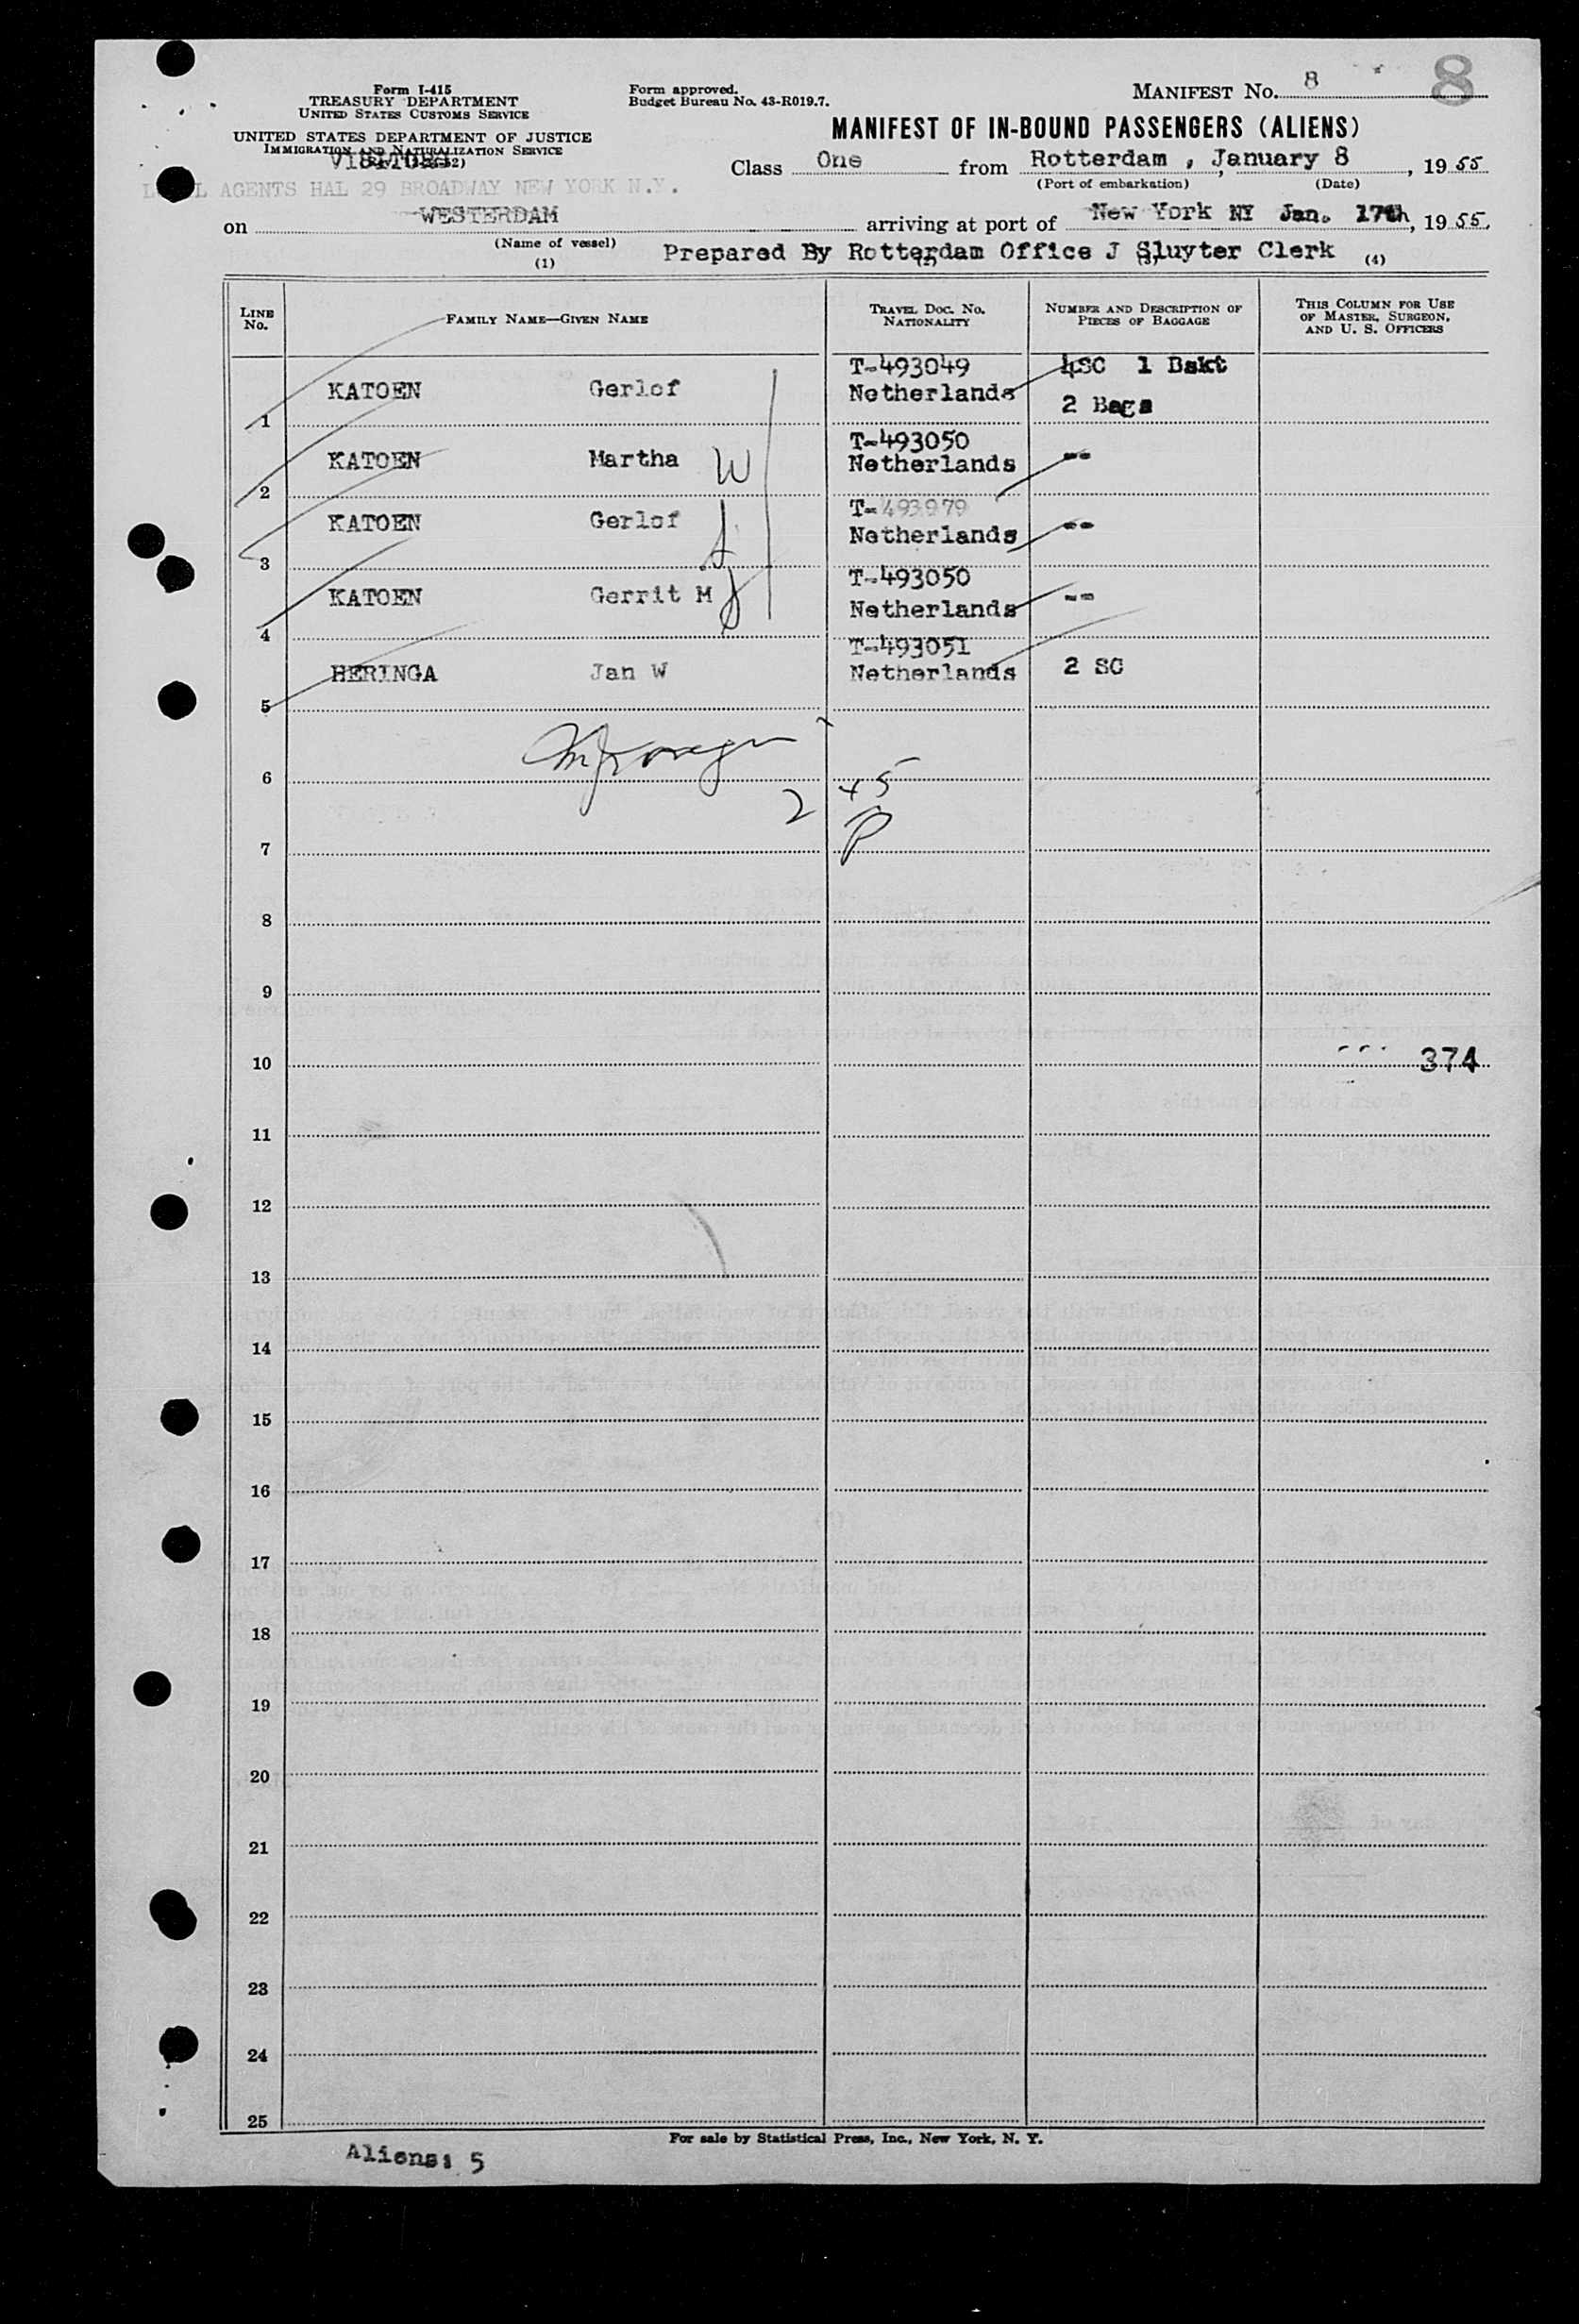 Form I-415
TREASURY DEPARTMENT
UNITED STATES CUSTOMS SERVICE
UNITED STATES DEPARTMENT OF JUSTICE
IMMIGRATION AND NATURALIZATION SERVICE
VISITORS
AGENTS HAL 29 BROADWAY NEW YORK N.Y.
Form approved.
Budget Bureau No. 43-R019.7.
MANIFEST No. 8
8
MANIFEST OF IN-BOUND PASSENGERS (ALIENS)
Class One from Rotterdam, January 8, 1955
(Port of embarkation) (Date)
on WESTERDAM arriving at port of New York NY Jan. 17th, 1955.
(Name of vessel)
Prepared By Rotterdam Office J Sluyter Clerk
(1) (4)
LINE No. FAMILY NAME—GIVEN NAME TRAVEL DOC. No. NATIONALITY NUMBER AND DESCRIPTION OF PIECES OF BAGGAGE THIS COLUMN FOR USE OF MASTER, SURGEON, AND U. S. OFFICERS
1 KATOEN Gerlof T-493049 Netherlands 4SC 1 Bskt 2 Bags
2 KATOEN Martha W T-493050 Netherlands --
3 KATOEN Gerlof T-493979 Netherlands --
4 KATOEN Gerrit M T-493050 Netherlands --
5 HERINGA Jan W T-493051 Netherlands 2 SC
6
2 + 5
P
7
8
9
10 374
11
12
13
14
15
16
17
18
19
20
21
22
23
24
25
For sale by Statistical Press, Inc., New York, N. Y.
Aliens: 5